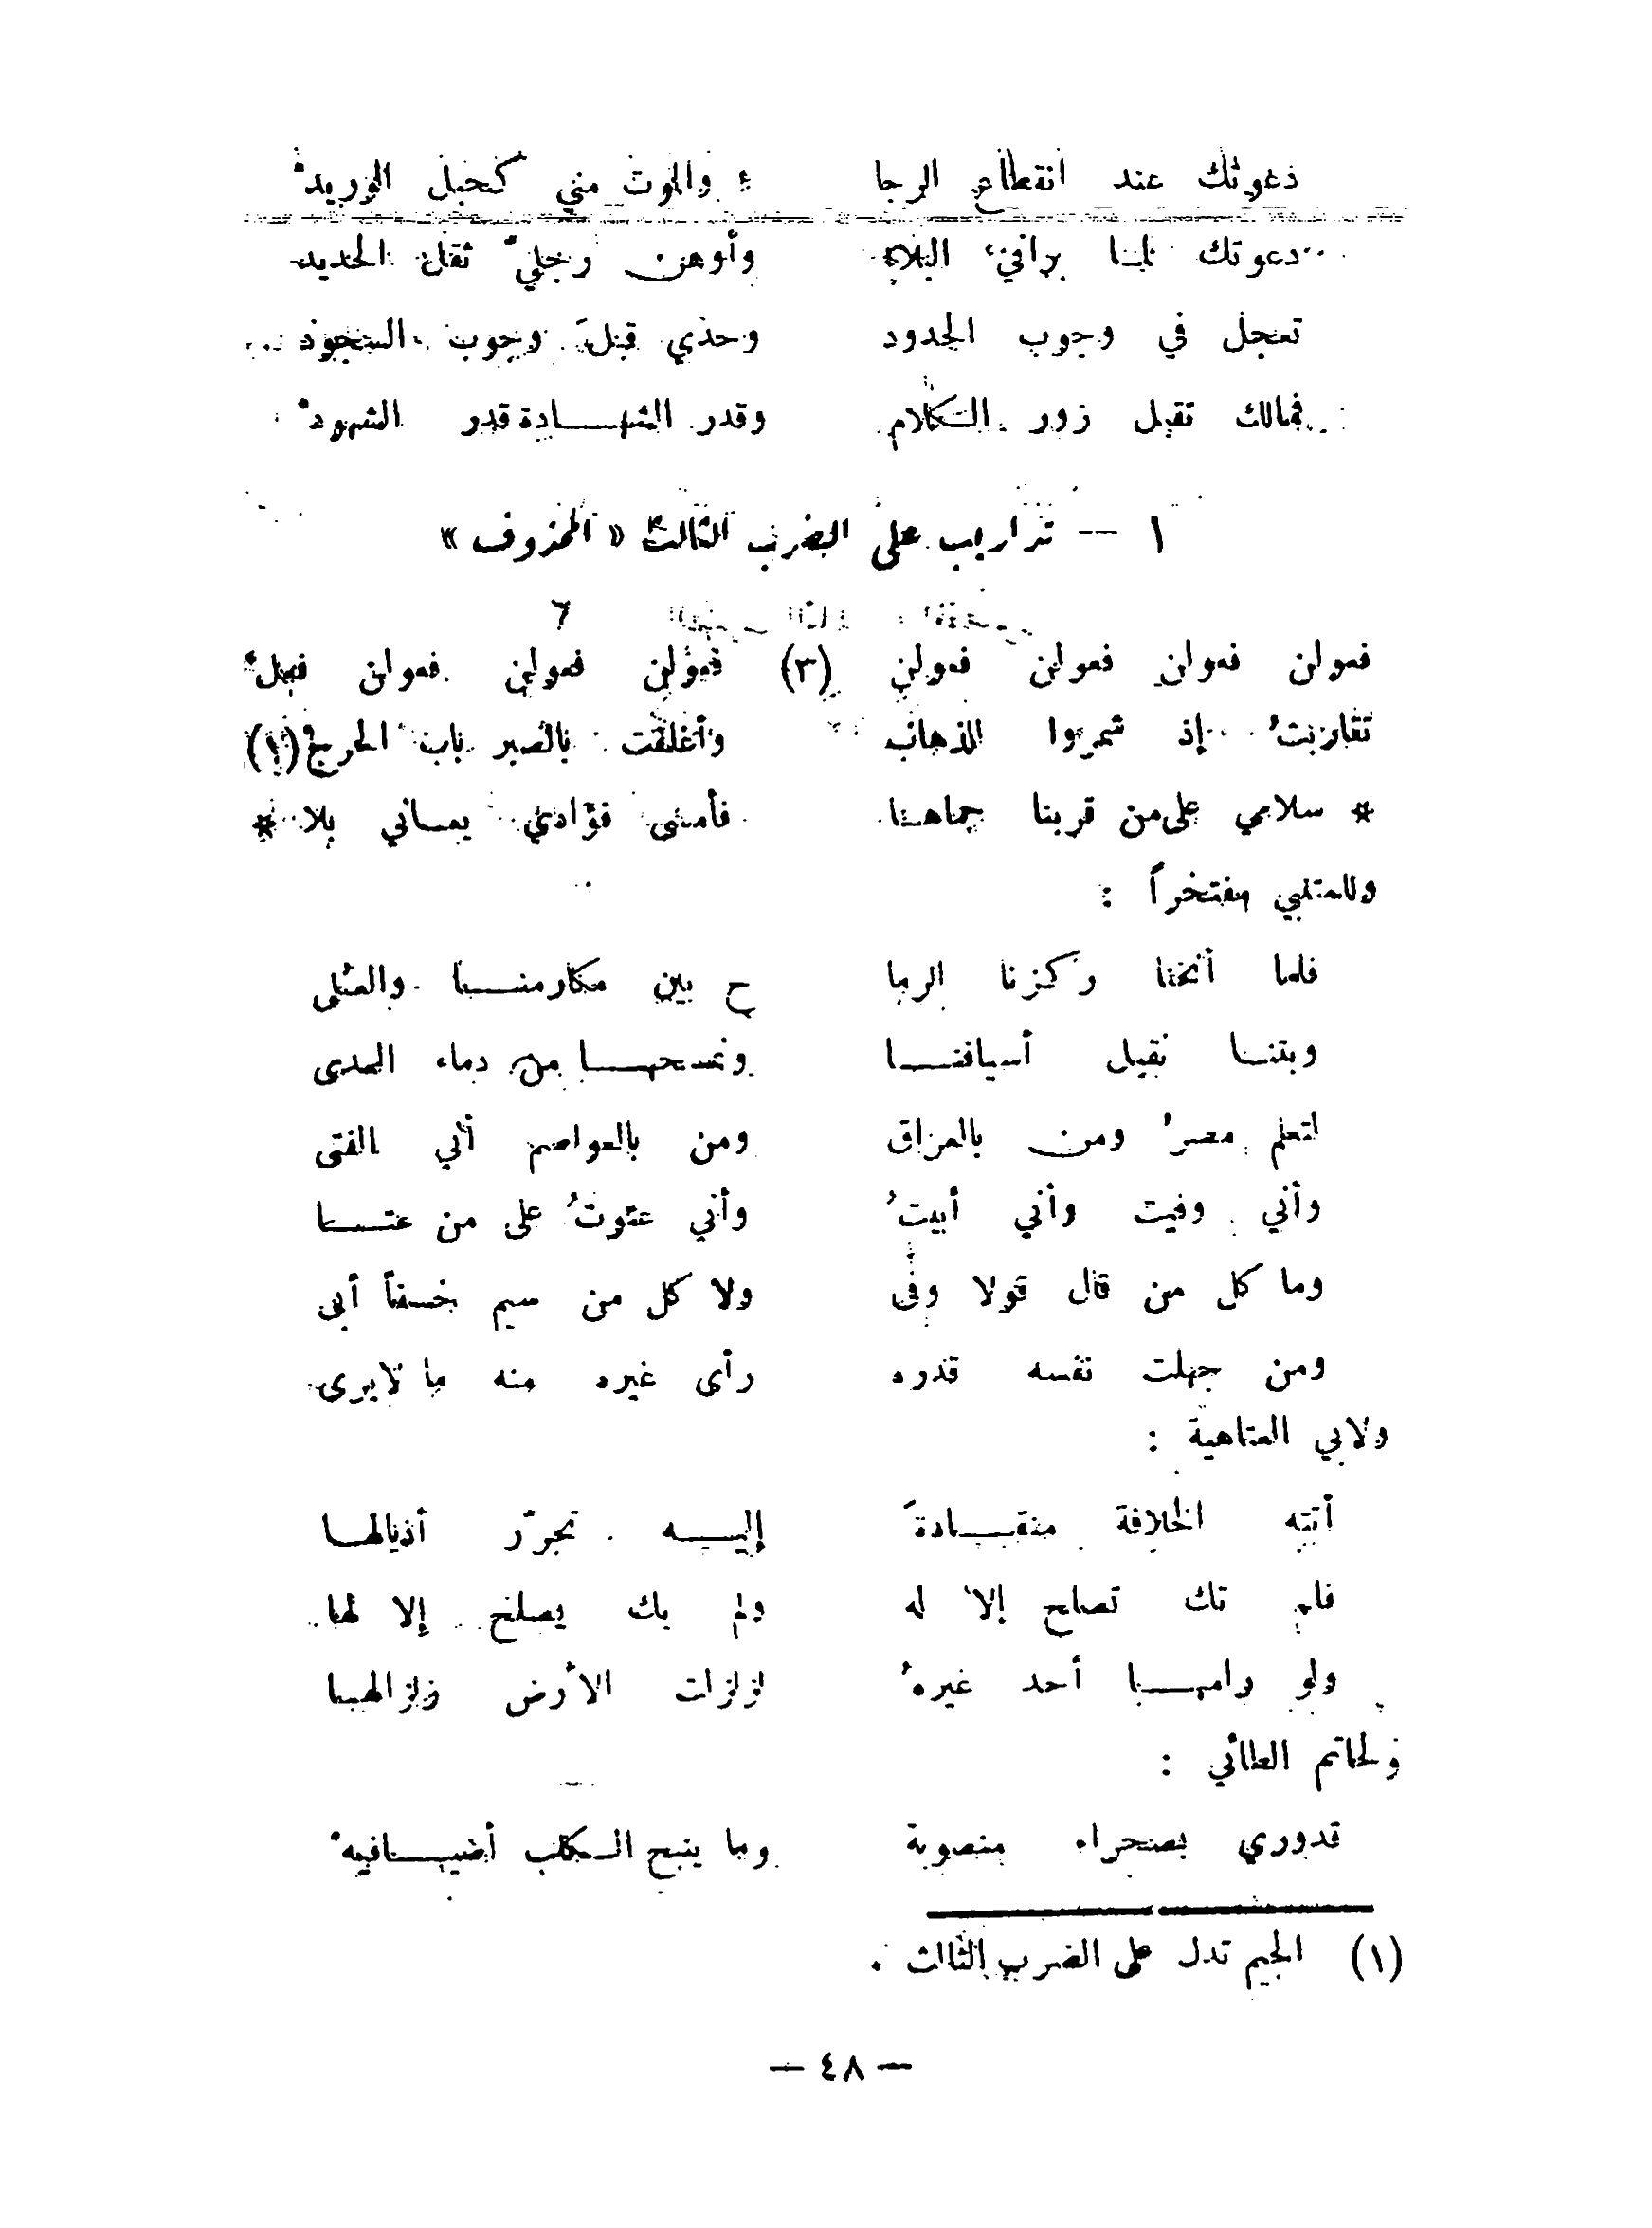 دعوتك عند انقطاع الرجا ء والموت مني كحبل الوريدْ
دعوتك لمنا براني البلاء وأوهن رجليّ ثقل الحديد
تعجل في وجوب الحدود وحدي قبلَ وجوب السجود
فمالك تقبل زور الكلام وقدر الشهادة قدر الشهودْ
١ — تداريب على الضرب الثالث « المحذوف »
فعولن فعولن فعولن فعولن (٣) فعولن فعولن فعولن فعلْ
تقاربتُ إذ شمروا للذهاب وأغلقت بالصبر باب الحرج (١)
* سلامي على من قربنا حماهنا فأمسى فؤادي يعاني بلا *
وللمتنبي مفتخراً :
فلما أنخنا ركزنا الرما ح بين مكارمنا والعلى
وبتنا نقبل أسيافنا ونمسحها من دماء العدى
لتعلم مصرُ ومن بالعراق ومن بالعواصم أني الفتى
وأني وفيت وأني أبيتُ وأني عتوتُ على من عتا
وما كل من قال قولا وفى ولا كل من سيم خسفاً أبى
ومن جهلت نفسه قدره رأى غيره منه ما لا يرى
ولابي العتاهية :
أتته الخلافة منقادةَ إليه تجرّر أذيالها
فلم تك تصلح إلا له ولم يك يصلح إلا لها
ولو رامها أحد غيرهُ لزلزلت الأرض زلزالها
ولحاتم الطائي :
قدوري بصحراء منصوبة وما ينبح الكلب أضيافيهْ
(١) الجيم تدل على الضرب الثالث .
— ٤٨ —